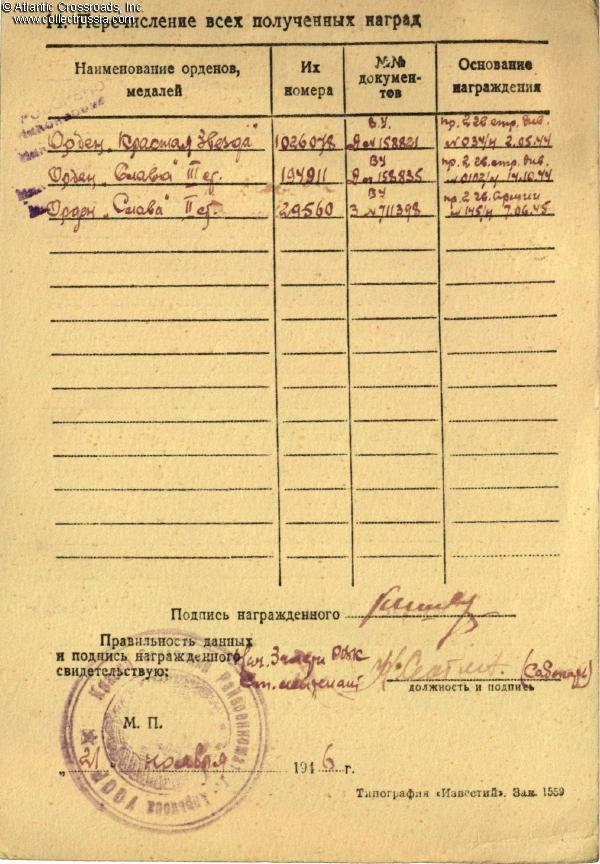 © Atlantic Crossroads, Inc.
www.collectrussia.com
Перечисление всех полученных наград
Наименование орденов, медалей
Их номера
№№ докумен-тов
Основание награждения
Орден „Красная Звезда" 1026078 ВУ. Д № 158821 пр. 2 гв. стр. див. № 034/н 2.05.44
Орден „Слава" III ст. 194911 ВУ Д № 158835 пр. 2 гв. стр. див. № 0102/н 14.10.44
Орден „Слава" II ст. 29560 ВУ З № 711398 пр. 2 гв. Армии № 145/н 7.06.45
Подпись награжденного
Правильность данных
и подпись награжденного
свидетельствую:
Ст. лейтенант
должность и подпись
М. П.
„21" ноября 1946 г.
Типография «Известий». Зак. 1559